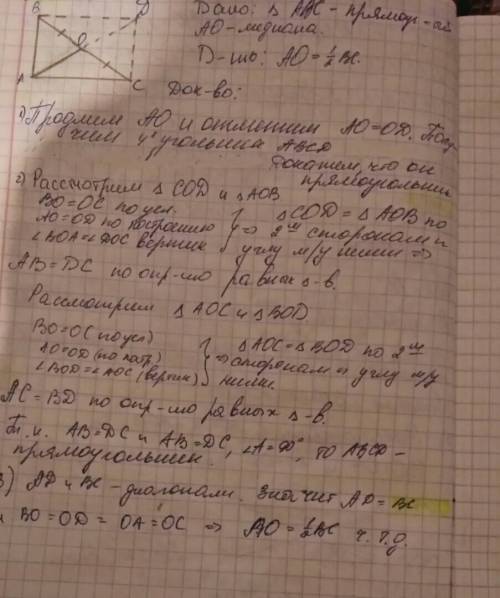 B D
O
A C
Дано: △ ABC - прямоуг-ый
AO - медиана.
Д-ть: AO = ½ BC.
Док-во:
1) Продлим AO и отметим AO = OD. Полу
чим 4 угольник ABCD
Докажем, что он
прямоугольник
2) Рассмотрим △ COD и △ AOB
BO = OC по усл.
AO = OD по построению
∠BOA = ∠DOC вертик
} => △ COD = △ AOB по
2ум сторонам и
углу м/у ними =>
AB = DC по опр-лю равных △-в.
Рассмотрим △ AOC и △ BOD
BO = OC (по усл)
AO = OD (по постр)
∠BOD = ∠AOC (вертик)
} => △AOC = △BOD по 2ум
сторонам и углу м/у
ними.
AC = BD по опр-лю равных △-в.
Т.к. AB = DC и AB = DC, ∠A = 90°, то ABCD -
прямоугольник.
3) AD и BC - диагонали. Значит AD = BC
и BO = OD = OA = OC => AO = ½ BC ч.т.д.